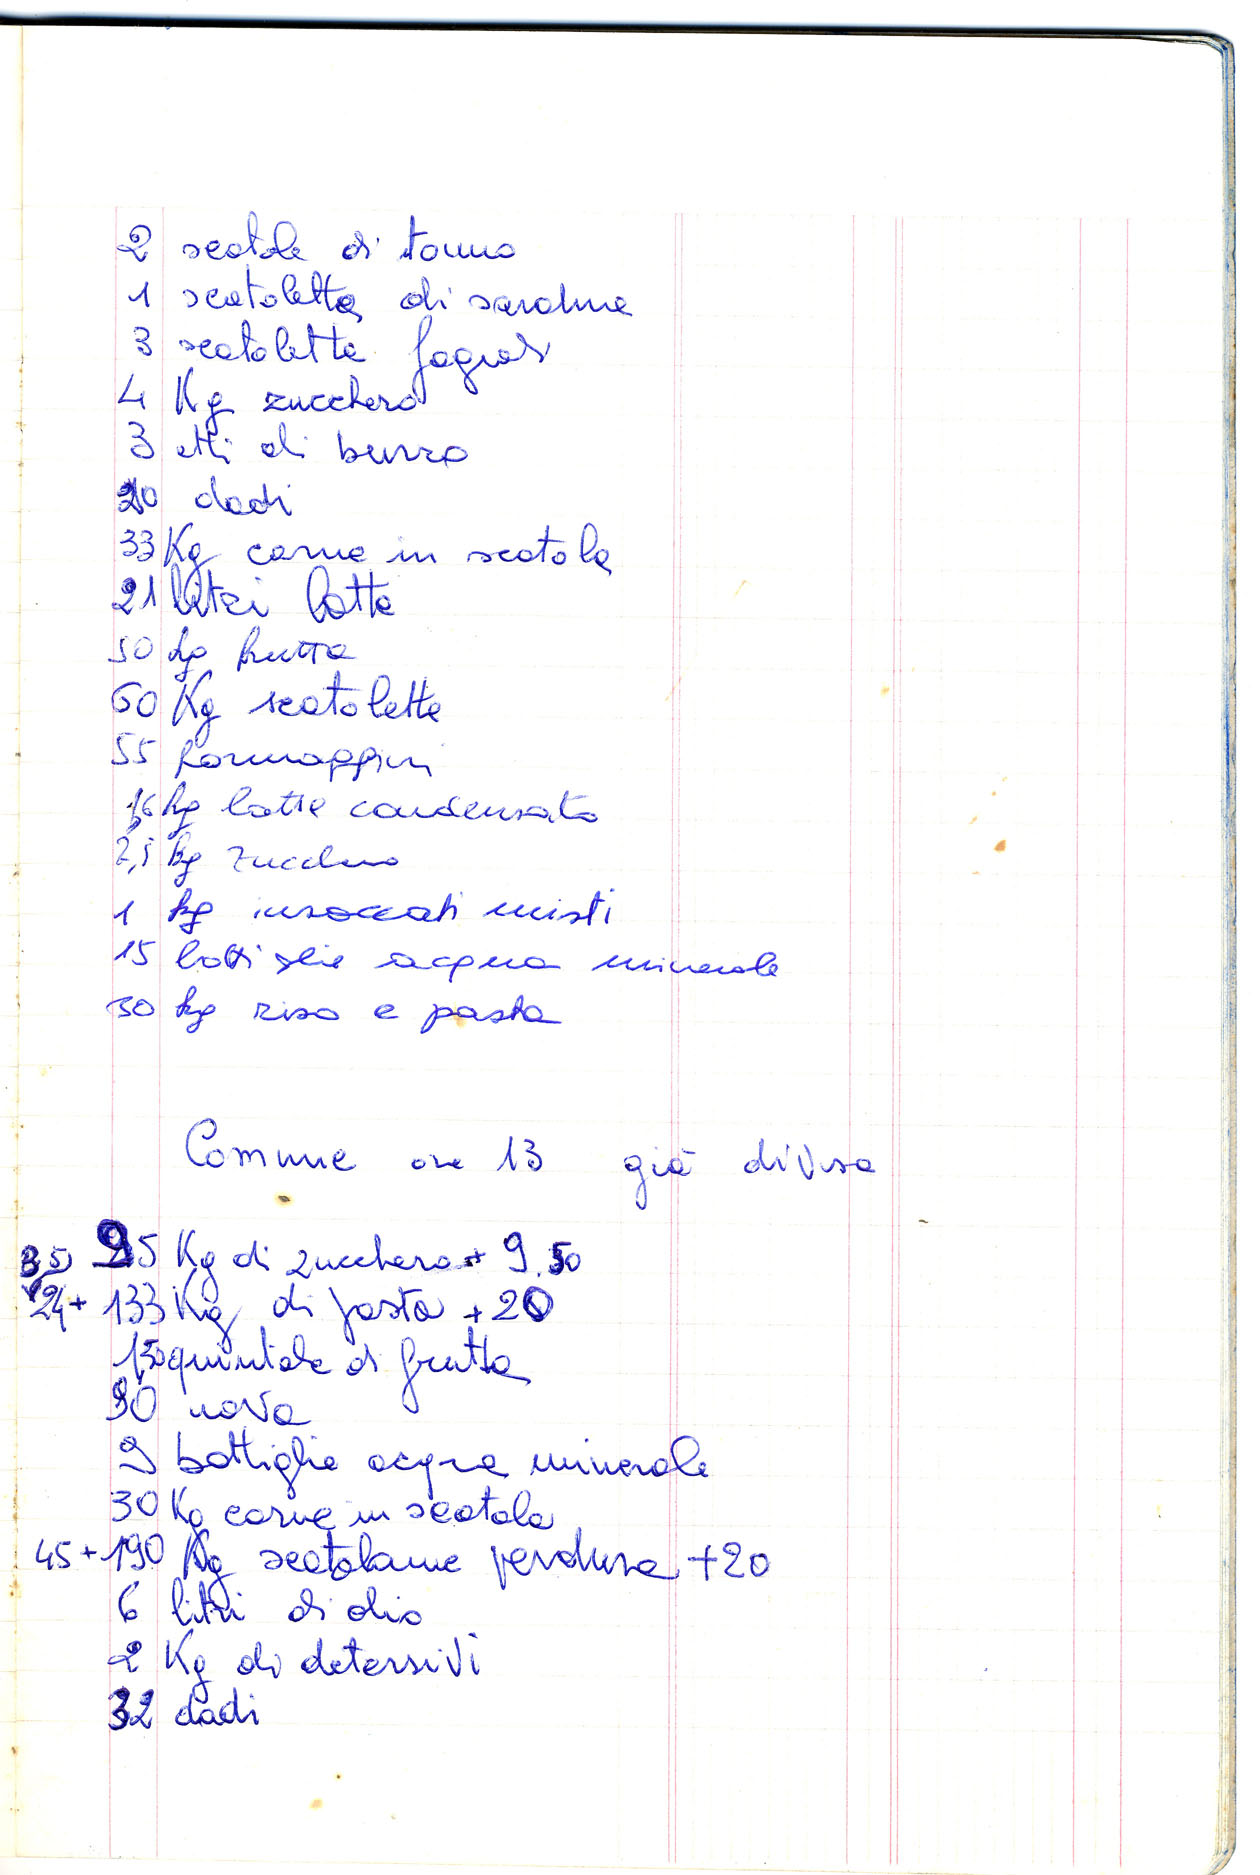 2 scatole di tonno
1 scatoletta di sardine
3 scatolette fagioli
4 Kg zucchero
3 etti di burro
20 dadi
33 Kg carne in scatola
21 litri latte
50 kg frutta
60 Kg scatolette
55 formaggini
kg latte condensato
2,5 kg zucchero
1 kg insaccati misti
15 bottiglie acqua minerale
30 kg riso e pasta
Comune ore 13 già divisa
25 Kg di zucchero + 9.50
24 + 133 Kg di pasta + 20
1,50 quintale di frutta
90 uova
9 bottiglie acqua minerale
30 Kg carne in scatola
45 + 190 Kg scatolame verdura + 20
6 litri di olio
2 Kg di detersivi
32 dadi